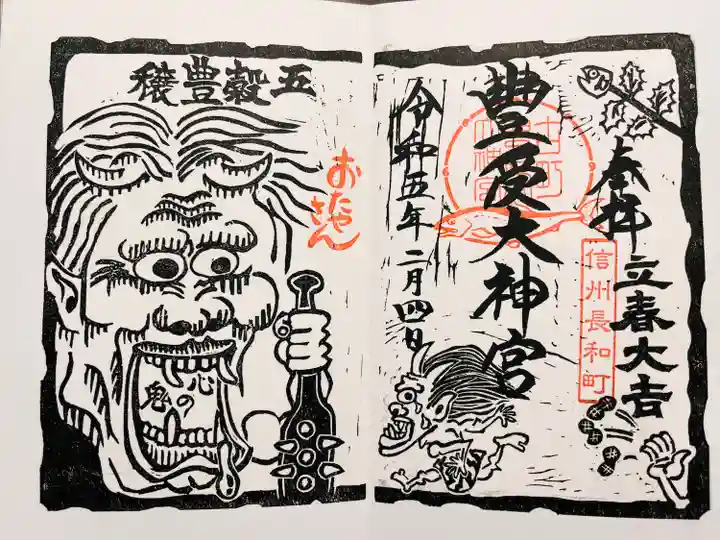 奉拝
立春大吉
信州長和町
豊受大神宮
令和五年二月四日
五穀豊穣
おたや
さん
心の鬼